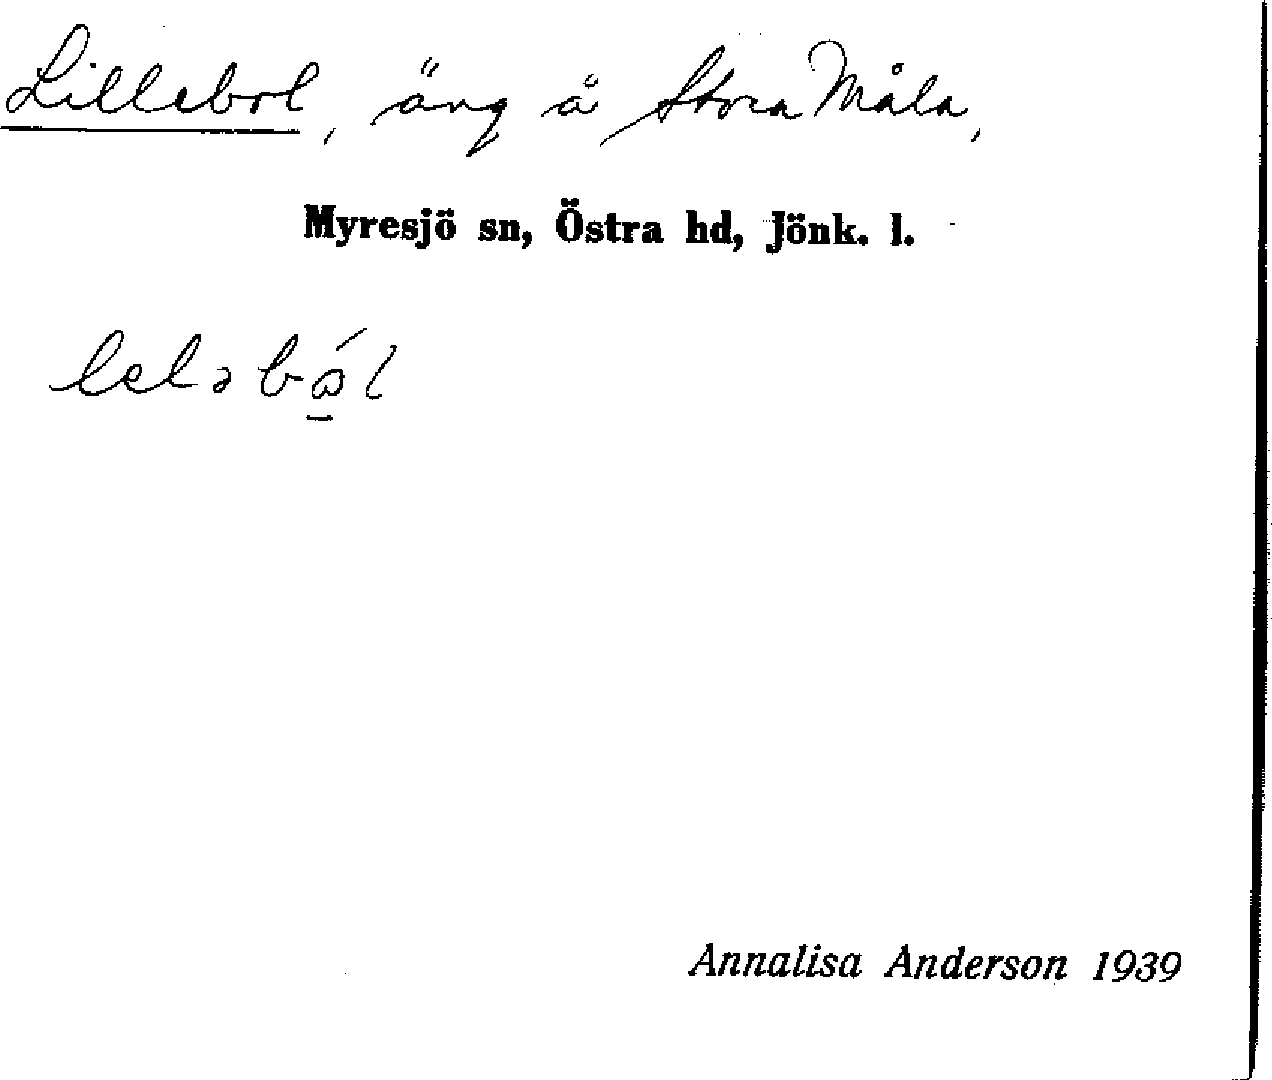 Lillebol, äng å Stora Måla,
Myresjö sn, Östra hd, Jönk. l.
Annalisa Anderson 1939